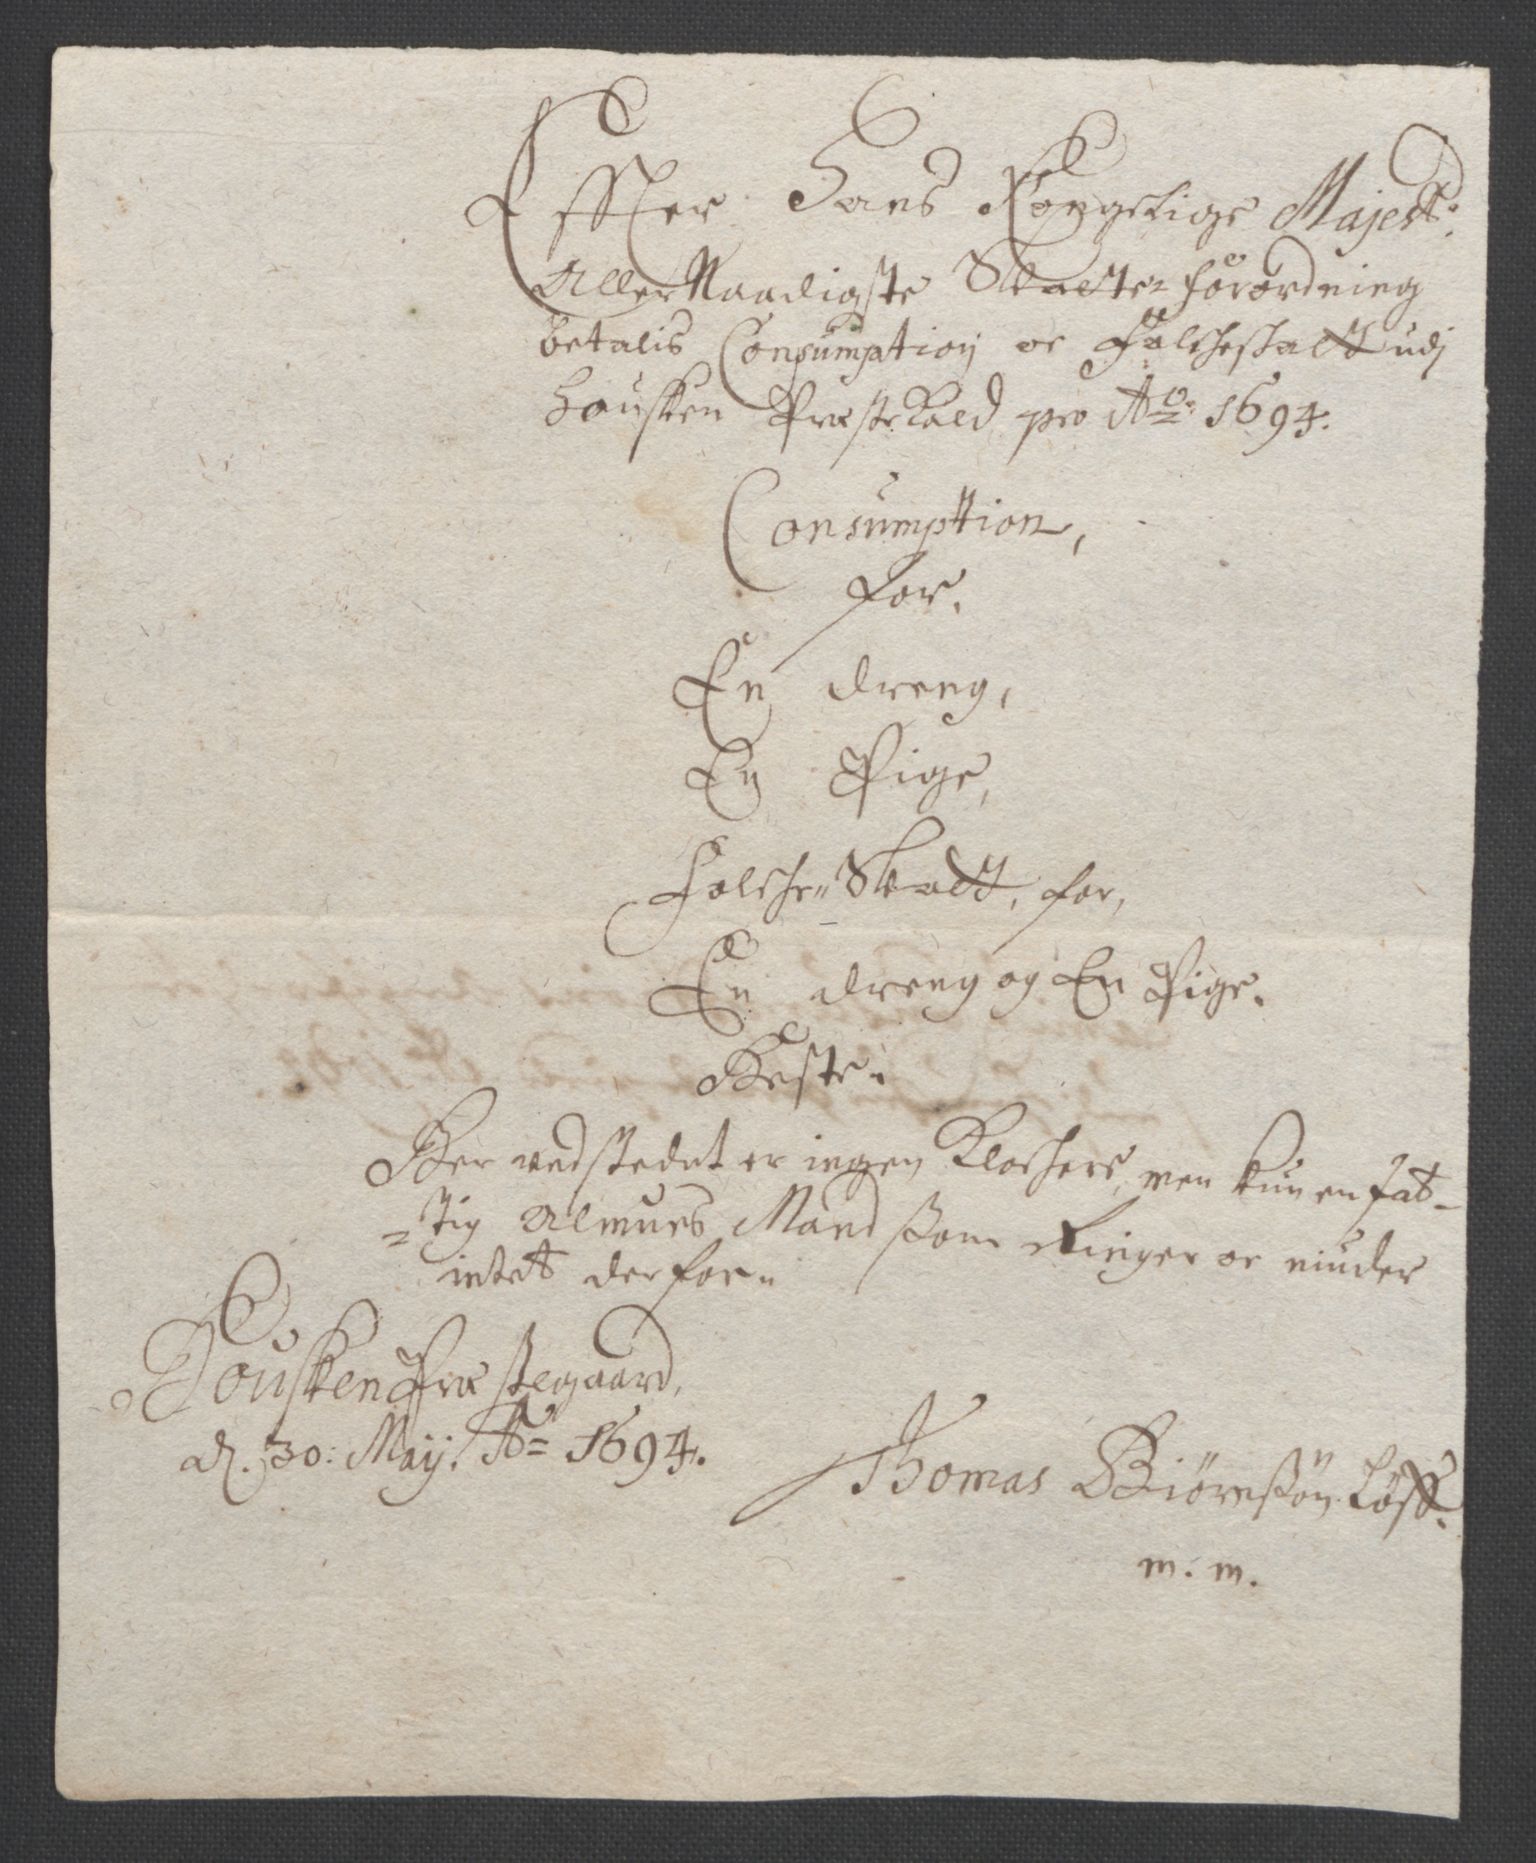 Effter Hans Kongelige Majestt:
AllerNaadigste Skatte forordning
betalis Consumption oc Folcheskatt udj
Housken Præstekald pro Ao: 1694.
Consumption,
for.
En dreng,
En Pige,
Folche" Skatt, for,
En dreng og En Pige.
Heste.
Her ved stedet er ingen Klocher, men kun en fat-
=tig Almues Mand ssom Ringer oc niuder
intet derfor.
Housken Præstegaard,
d. 30: Maij. Ao= 1694.
Thomas Biörnssön
m. m.